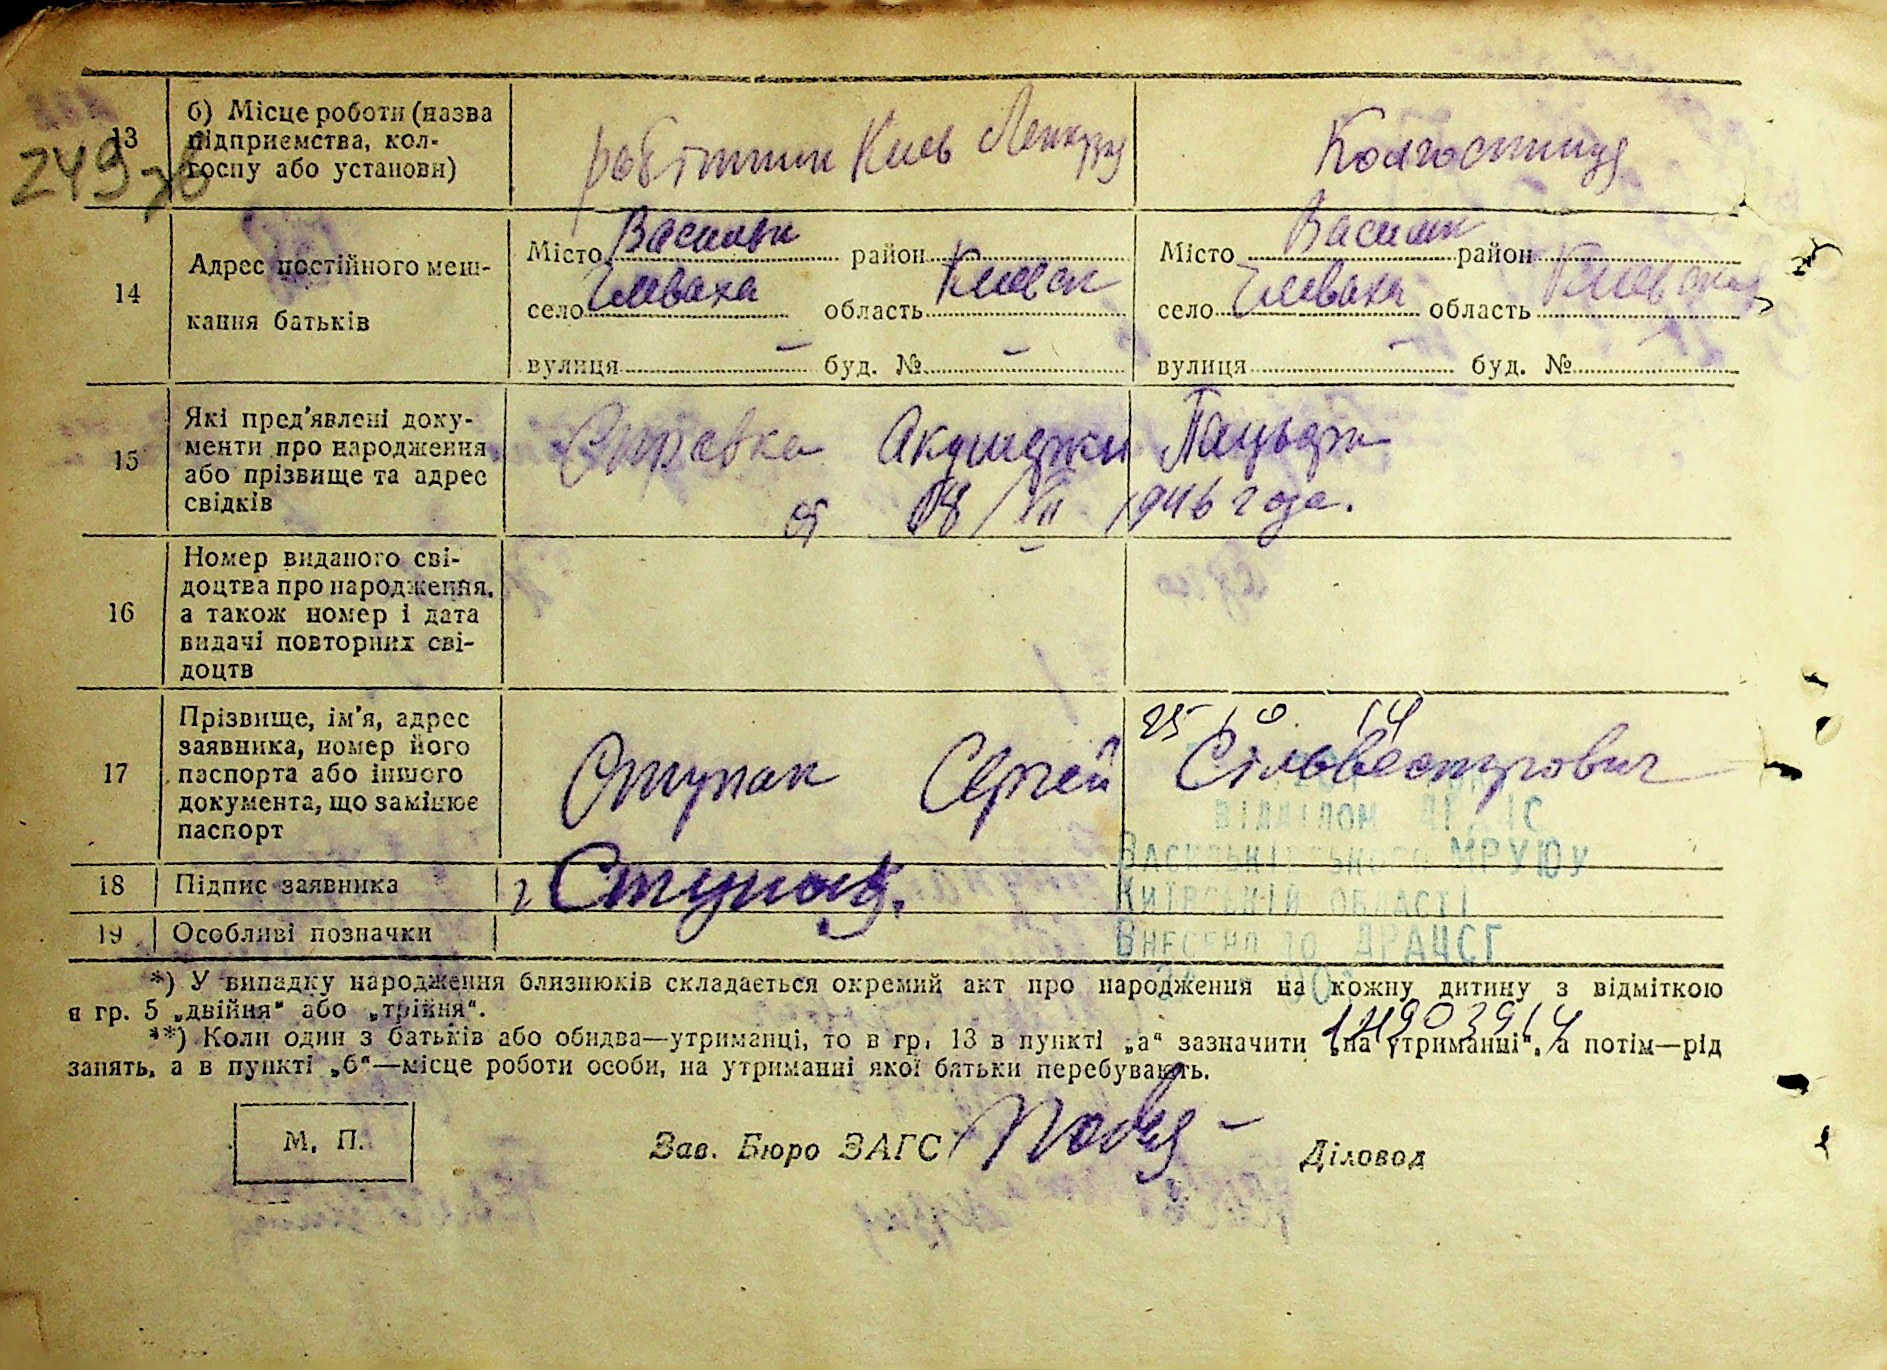 13
б) Місце роботи (назва
підприємства, кол-
госпу або установи)
249
робітник Киев
Колгоспниця
14
Адрес постійного меш-
кання батьків
Місто Васильк район
село Глеваха область Киевск
вулиця — буд. № —
Місто Васильк район
село Глеваха область Киевская
вулиця — буд. №
15
Які пред'явлені доку-
менти про народження
або прізвище та адрес
свідків
Справка Акушерки
от 18/VII 1946 года.
16
Номер виданого сві-
доцтва про народження,
а також номер і дата
видачі повторних сві-
доцтв
17
Прізвище, ім'я, адрес
заявника, номер його
паспорта або іншого
документа, що замінює
паспорт
Ступак Сергей Сільвестрович
ВІДДІЛОМ
МРУЮУ
КИЇВСЬКІЙ ОБЛАСТІ
ВНЕСЕНО ДО ДРАЦСГ
18
Підпис заявника
Ступак.
19
Особливі позначки
*) У випадку народження близнюків складається окремий акт про народження на кожну дитину з відміткою
в гр. 5 „двійня" або „трійня".
**) Коли один з батьків або обидва—утриманці, то в гр. 13 в пункті „а" зазначити „на утриманні", а потім—рід
занять, а в пункті „б"—місце роботи особи, на утриманні якої батьки перебувають.
М. П.
Зав. Бюро ЗАГС
Діловод